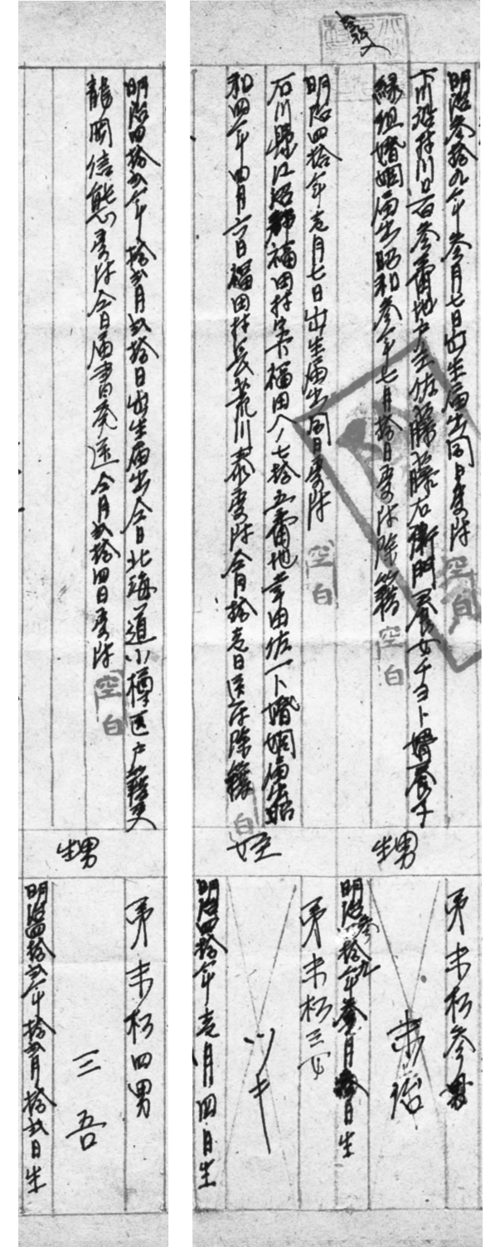 明治参拾九年参月七日出生届出同日受附
川口百参番地戸主佐藤藤右衛門養女チヨト婿養子
縁組婚姻届出昭和参年七月拾日受附除籍
空白
空白
甥
弟末松参男
末治
明治参拾九年参月日生
明治四拾年壱月七日出生届出同日受附
空白
石川縣江沼郡福田村字下福田ヘノ七拾五番地幸田佐一ト婚姻届出昭
和四年四月六日福田村長荒川泰受附仝月拾壱日送付除籍
白
姪
弟末松三女
ツキ
明治四拾年壱月四日生
明治四拾弐年拾弐月弐拾日出生届出仝日北海道小樽区戸籍吏
龍岡信熊受附仝日届書発送仝月弐拾四日受附
空白
甥
弟末松四男
三吾
明治四拾弐年拾弐月拾弐日生